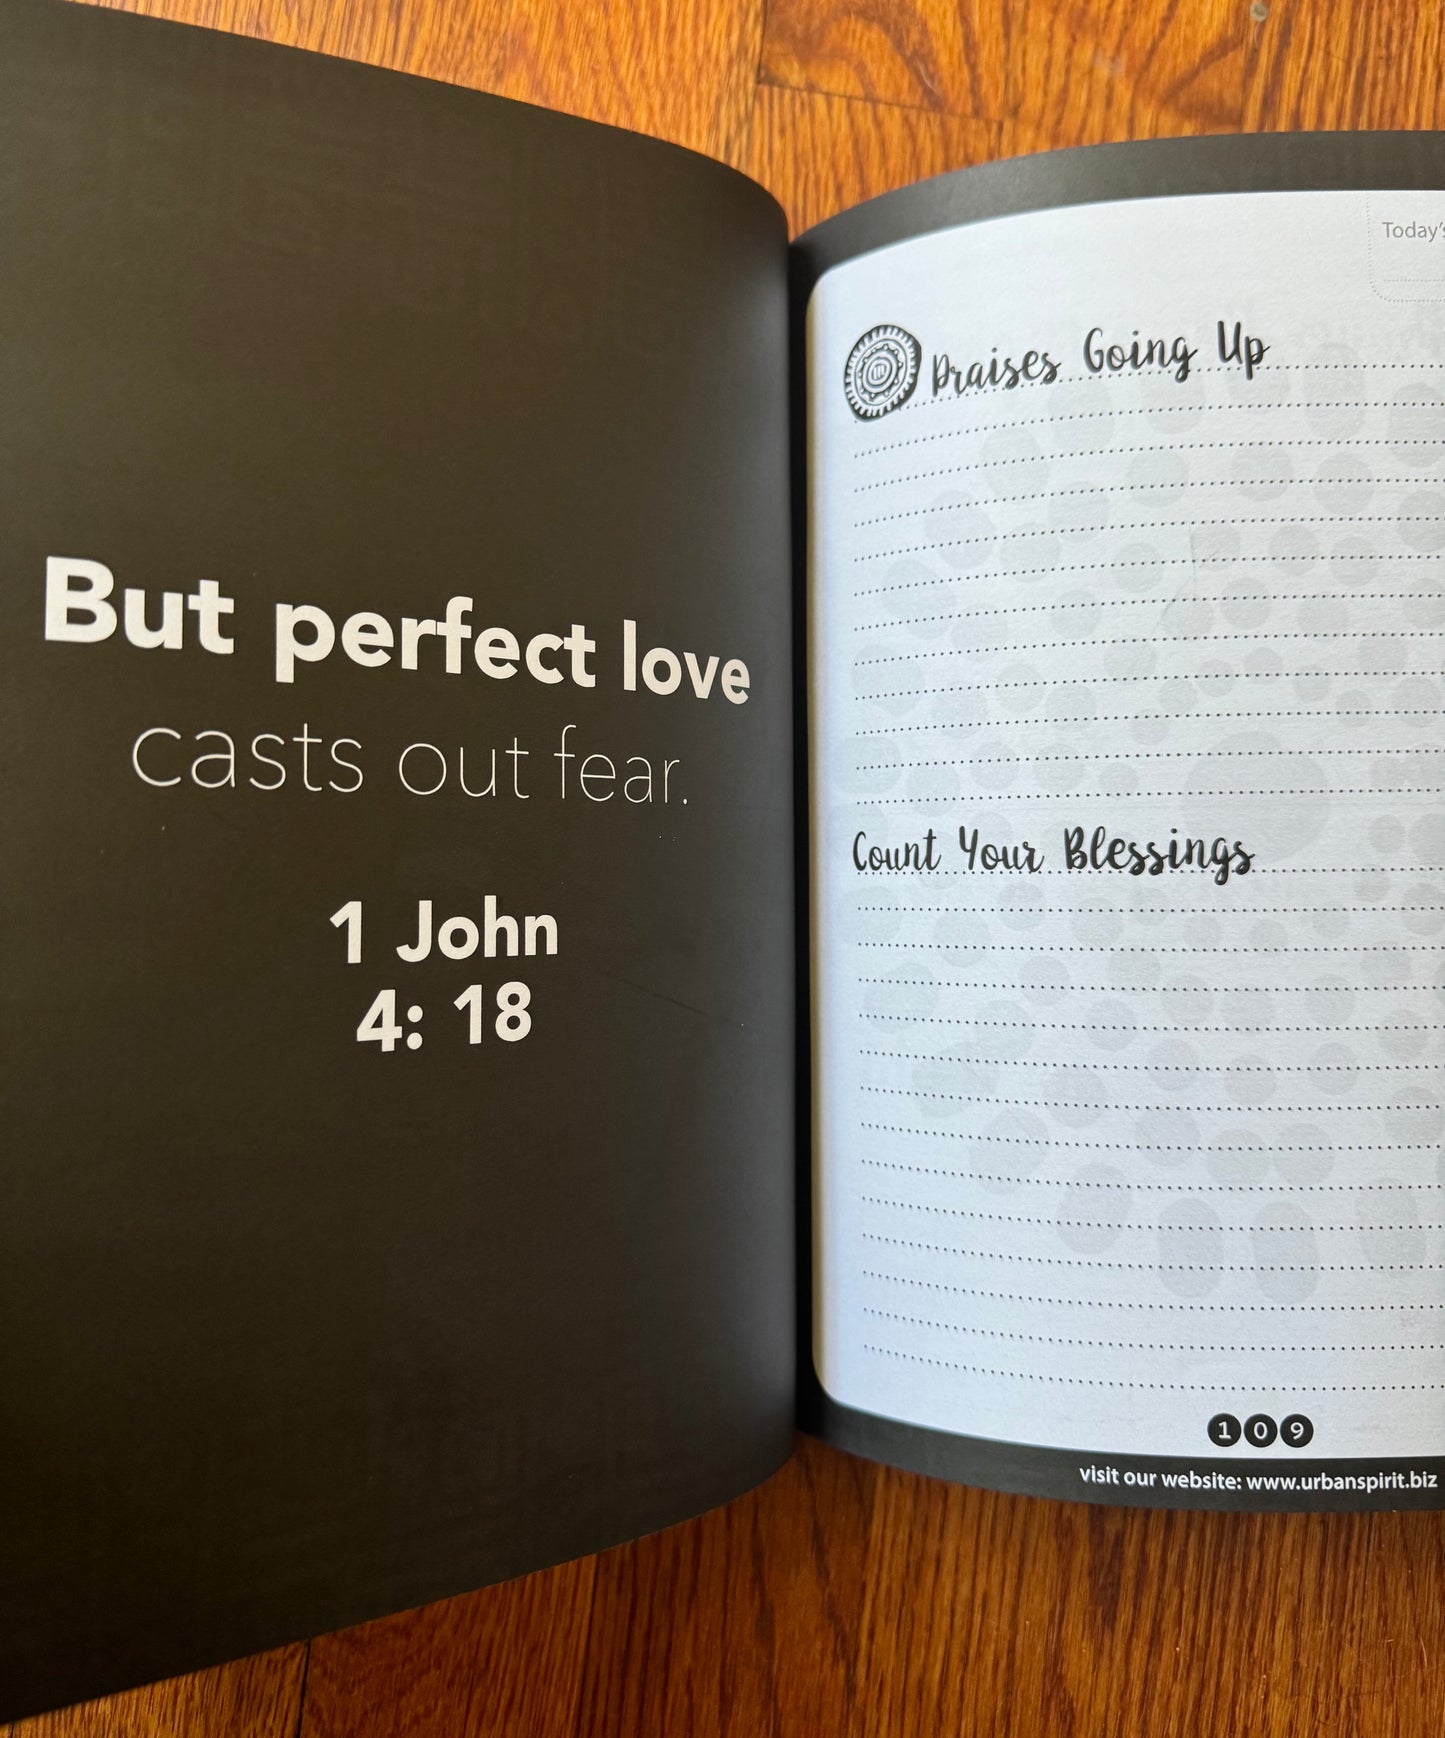 But perfect love
casts out fear.
1 John
4: 18
Today's
Praises Going Up
Count Your Blessings
109
visit our website: www.urbanspirit.biz